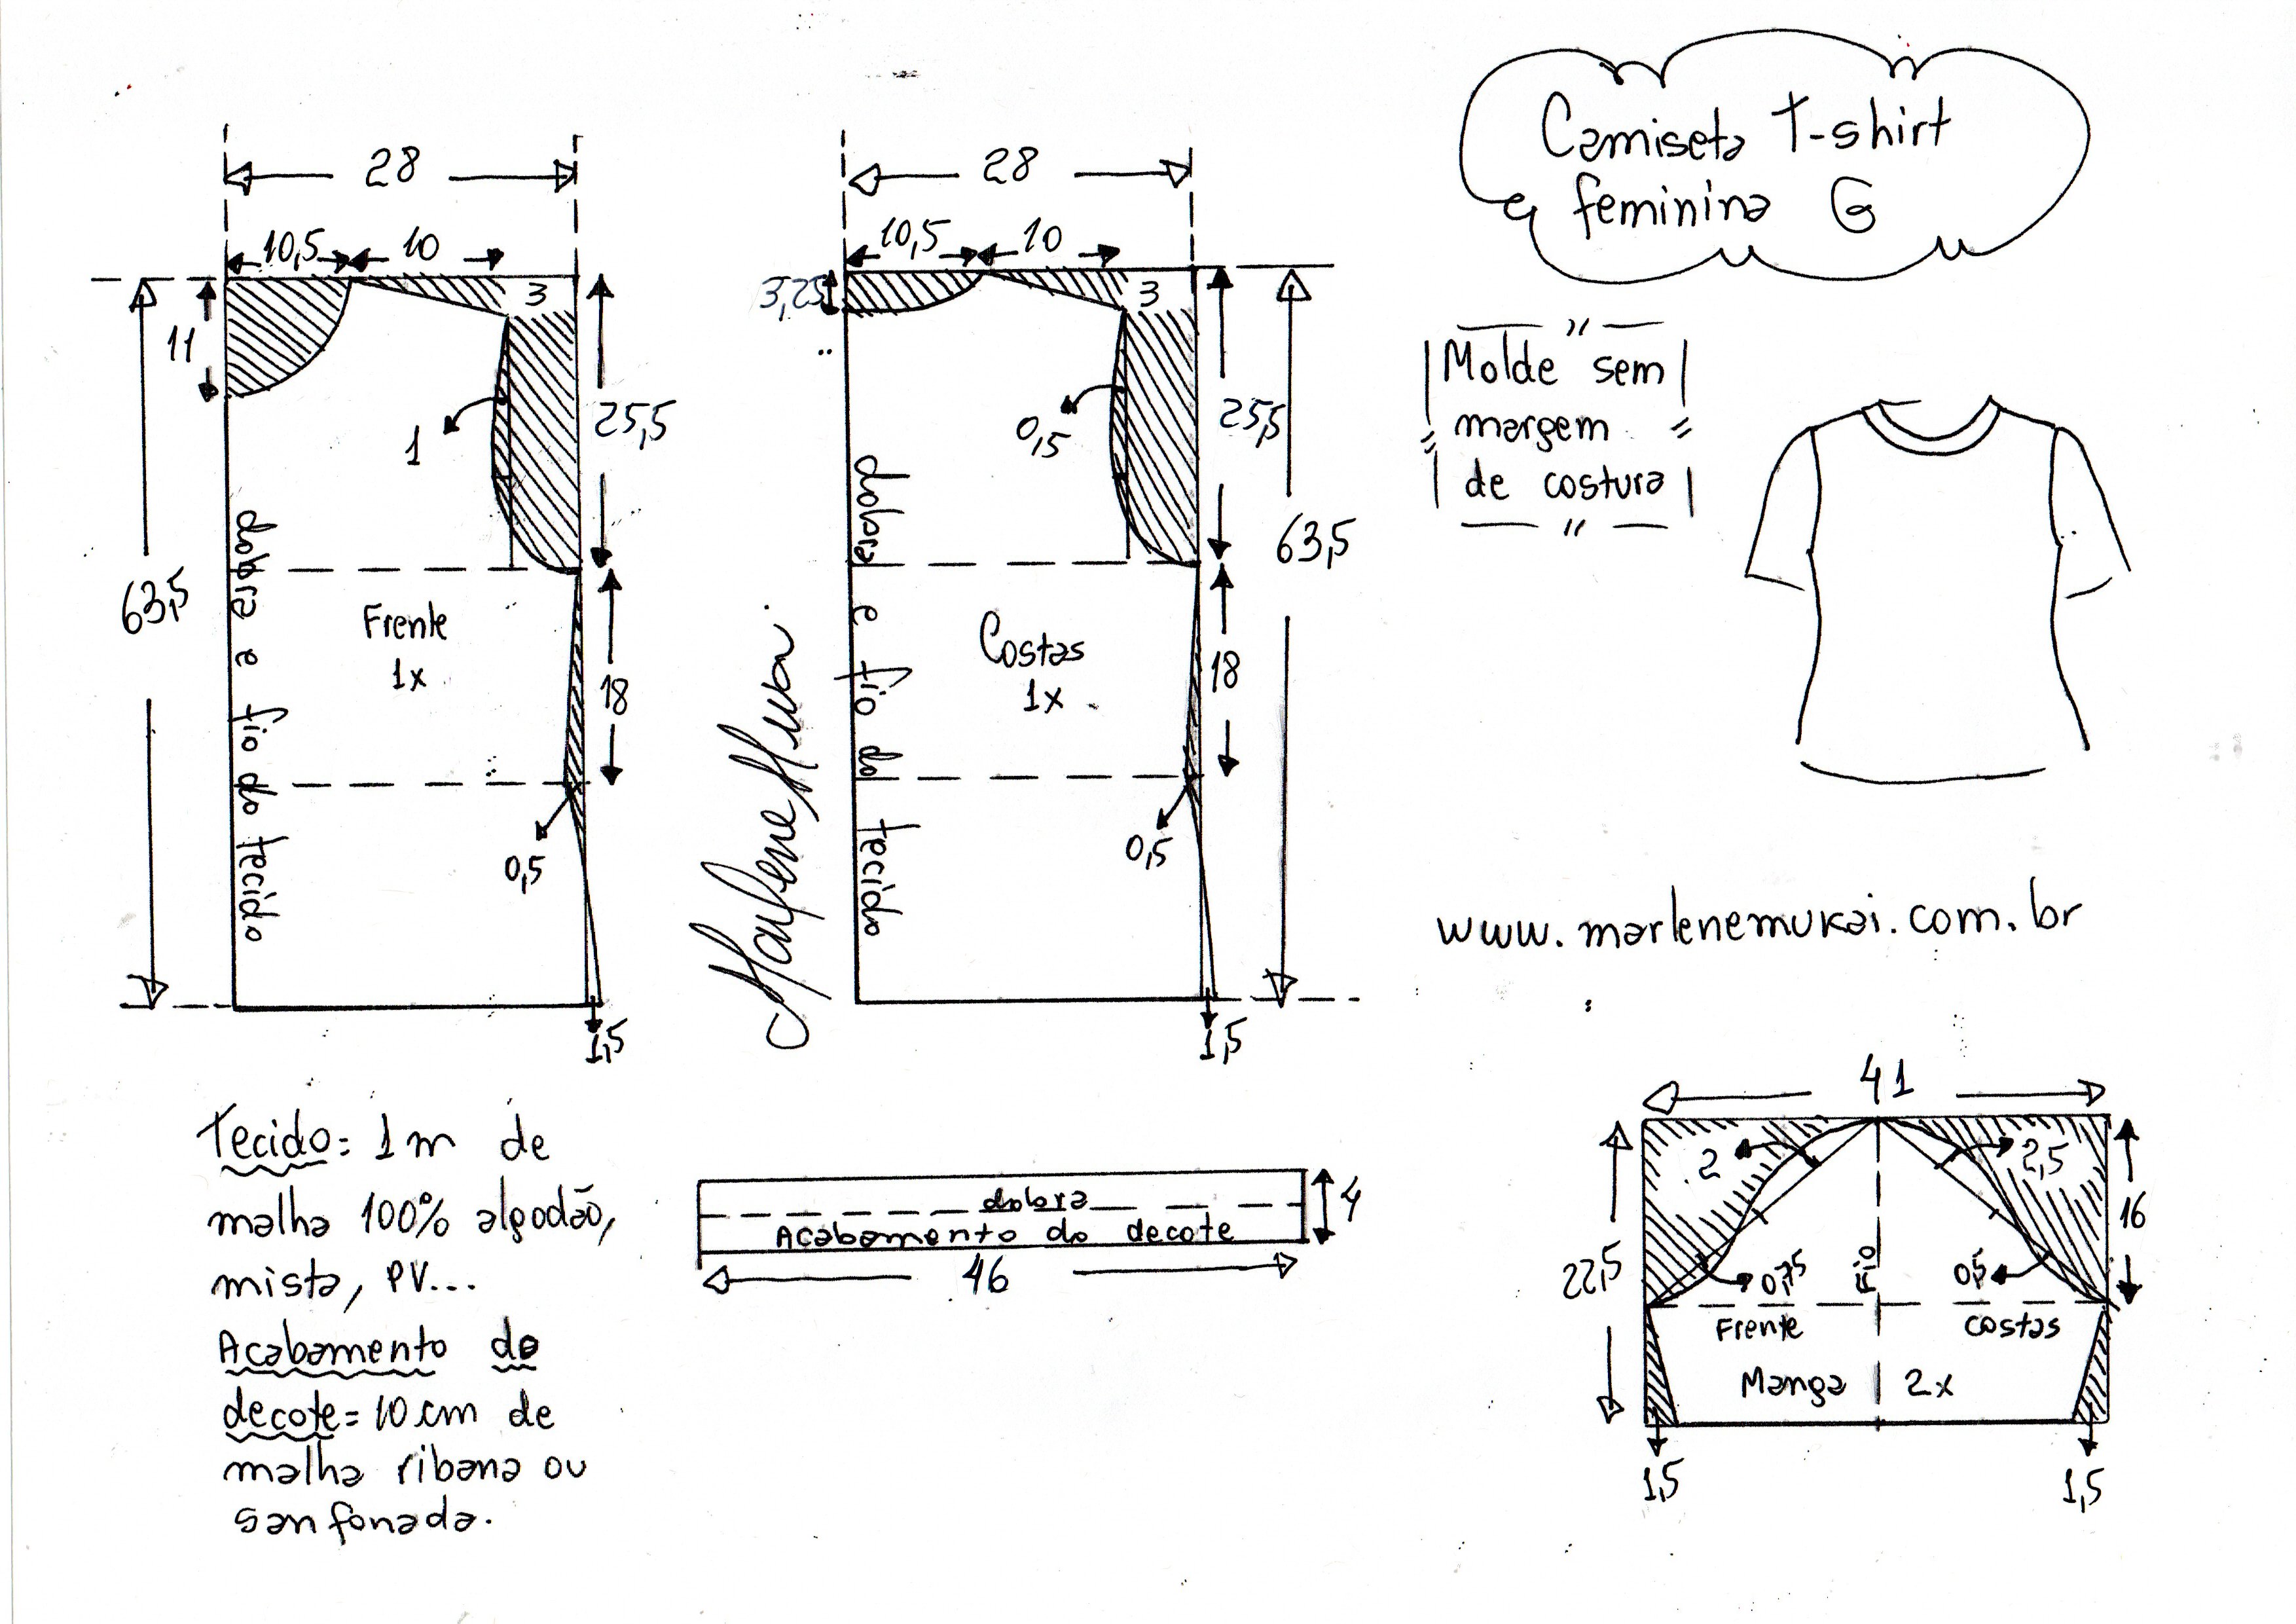 Camiseta T-shirt
feminina G
Molde sem
margem
de costura
28
10,5
10
3
11
1
25,5
63,5
dobra e fio do tecido
Frente
1x
18
0,5
1,5
28
10,5
10
3,25
3
0,5
25,5
63,5
dobra e fio do tecido
Costas
1x
18
0,5
1,5
Marlene Mukai
www.marlenemukai.com.br
Tecido= 1m de
malha 100% algodão,
mista, PV...
Acabamento do
decote= 10cm de
malha ribana ou
sanfonada.
dobra
Acabamento do decote
4
46
41
2
2,5
16
22,5
0,75
Fio
0,5
Frente
costas
Manga 2x
1,5
1,5